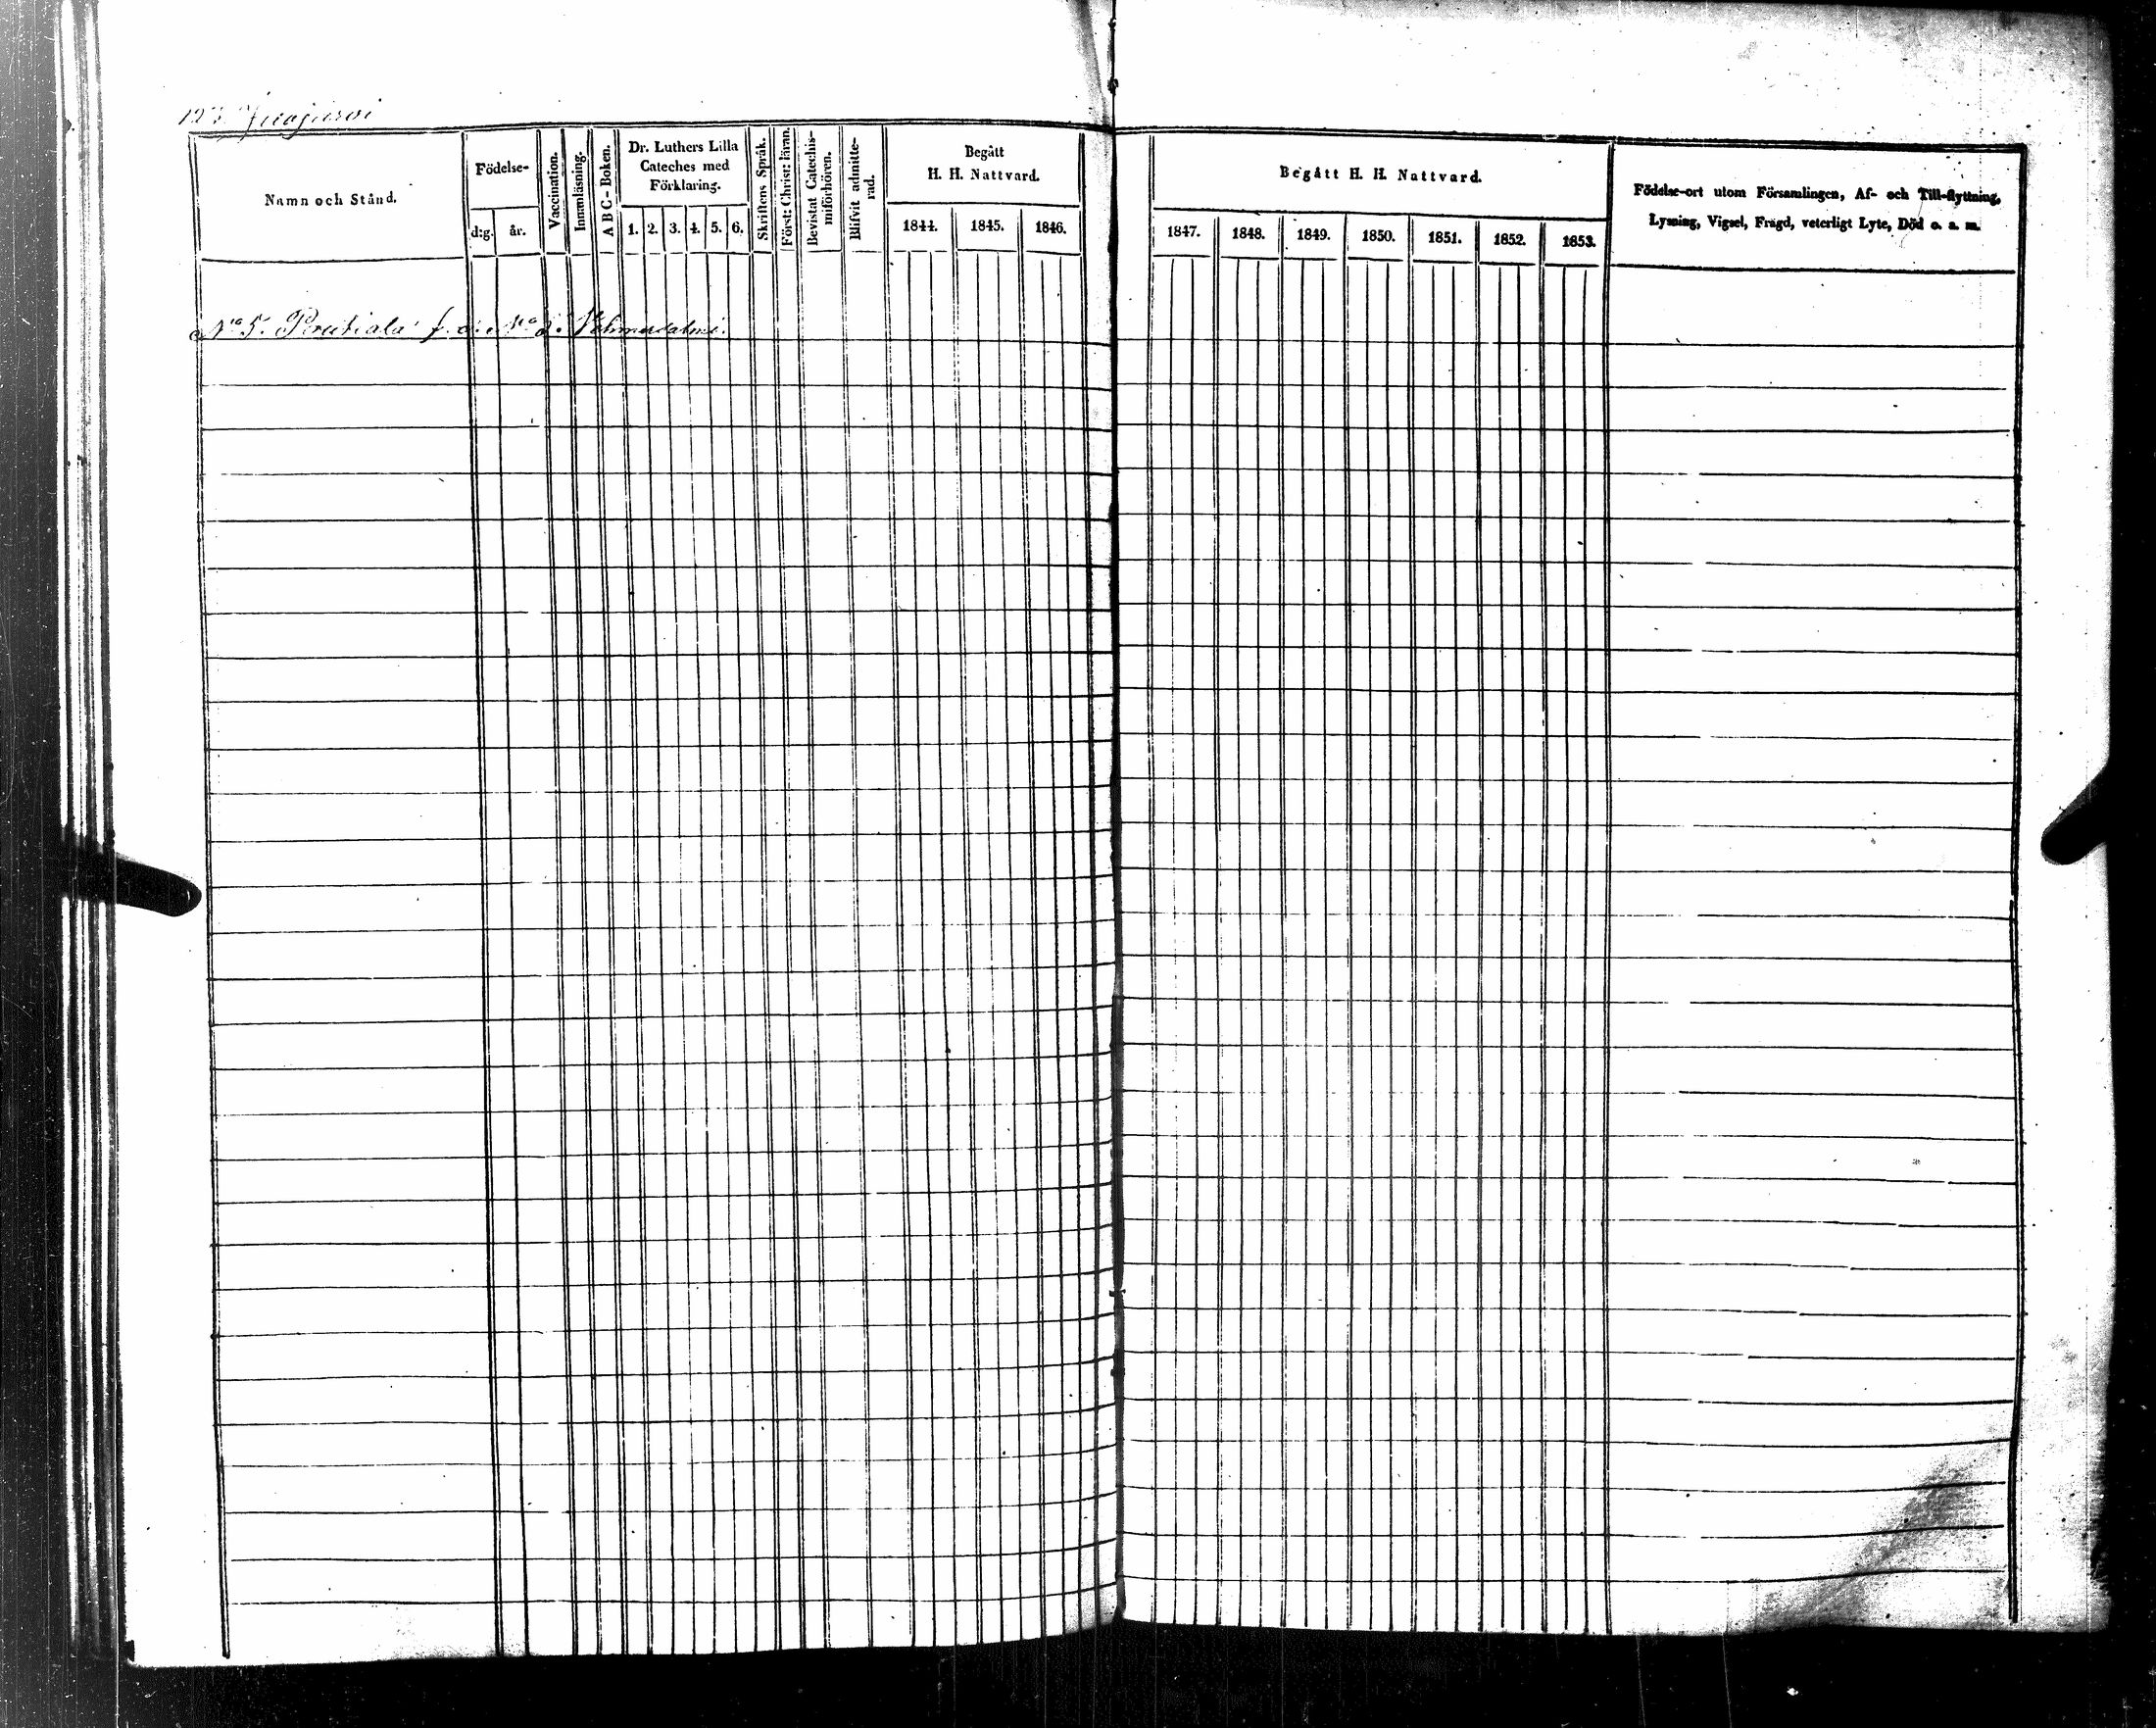 Namn och Stånd.
Födelse-
d:g. år.
Vaccination.
Innanläsning.
A B C - Boken.
Dr. Luthers Lilla
Cateches med
Förklaring.
1. 2. 3. 4. 5. 6.
Skriftens Språk.
Först: Christ: läran.
Bevistat Catechis-
miförhören.
Blifvit admitte-
rad.
Begått
H. H. Nattvard.
1844. 1845. 1846.
Begått H. H. Nattvard.
1847. 1848. 1849. 1850. 1851. 1852. 1853.
Födelse-ort utom Församlingen, Af- och Till-flyttning,
Lysning, Vigsel, Frägd, veterligt Lyte, Död o. s. m.
No 5.